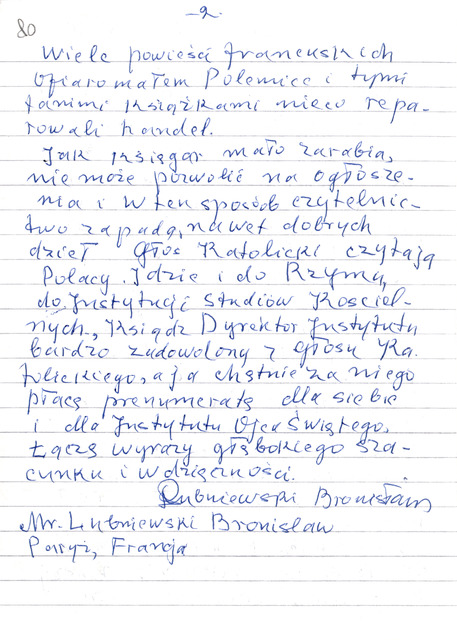 - 2 -
80
Wiele powieści francuskich
ofiarowałem Polemice i tymi
tanimi książkami nieco repa-
rowali handel.
Jak księgarz mało zarabia,
nie może pozwolić na ogłosze-
nia i w ten sposób czytelnic-
two zapada, nawet dobrych
dzieł Głos Katolicki czytają
Polacy. Idzie i do Rzymu,
do Instytucji Studiów Kościel-
nych, Ksiądz Dyrektor Instytutu
bardzo zadowolony z Głosu Ka-
tolickiego, a ja chętnie za niego
płacę prenumeratę dla siebie
i dla Instytutu Ojca Świętego.
Łączę wyrazy głębokiego sza-
cunku i wdzięczności.
Lubniewski Bronisław
Mr. Lubniewski Bronisław
Paryż, Francja